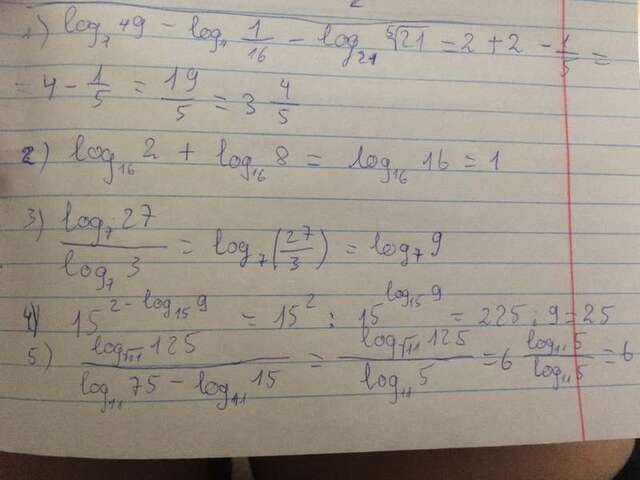 1) log₇ 49 - log₄ 1/16 - log₂₁ ⁵√21 = 2 + 2 - 1/5 =
= 4 - 1/5 = 19/5 = 3 4/5
2) log₁₆ 2 + log₁₆ 8 = log₁₆ 16 = 1
3) log₇ 27 / log₇ 3 = log₇ (27/3) = log₇ 9
4) 15^(2 - log₁₅ 9) = 15² : 15^(log₁₅ 9) = 225 : 9 = 25
5) log_√11 125 / (log₁₁ 75 - log₁₁ 15) = log_√11 125 / log₁₁ 5 = 6 log₁₁ 5 / log₁₁ 5 = 6